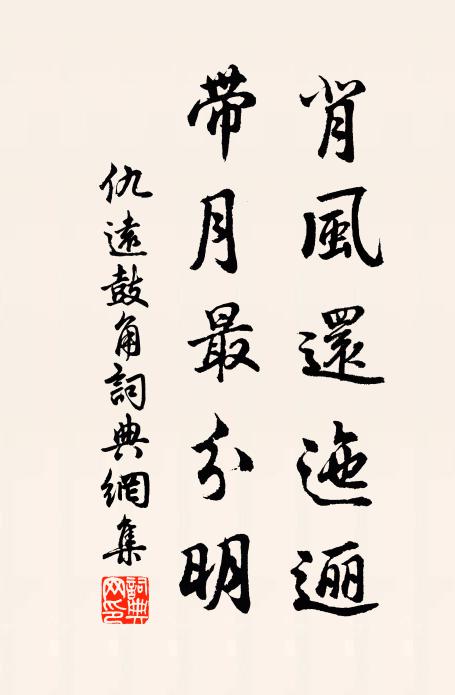 背風還迤逦
带月最分明
仇遠鼓角詞典網集
詞典网印